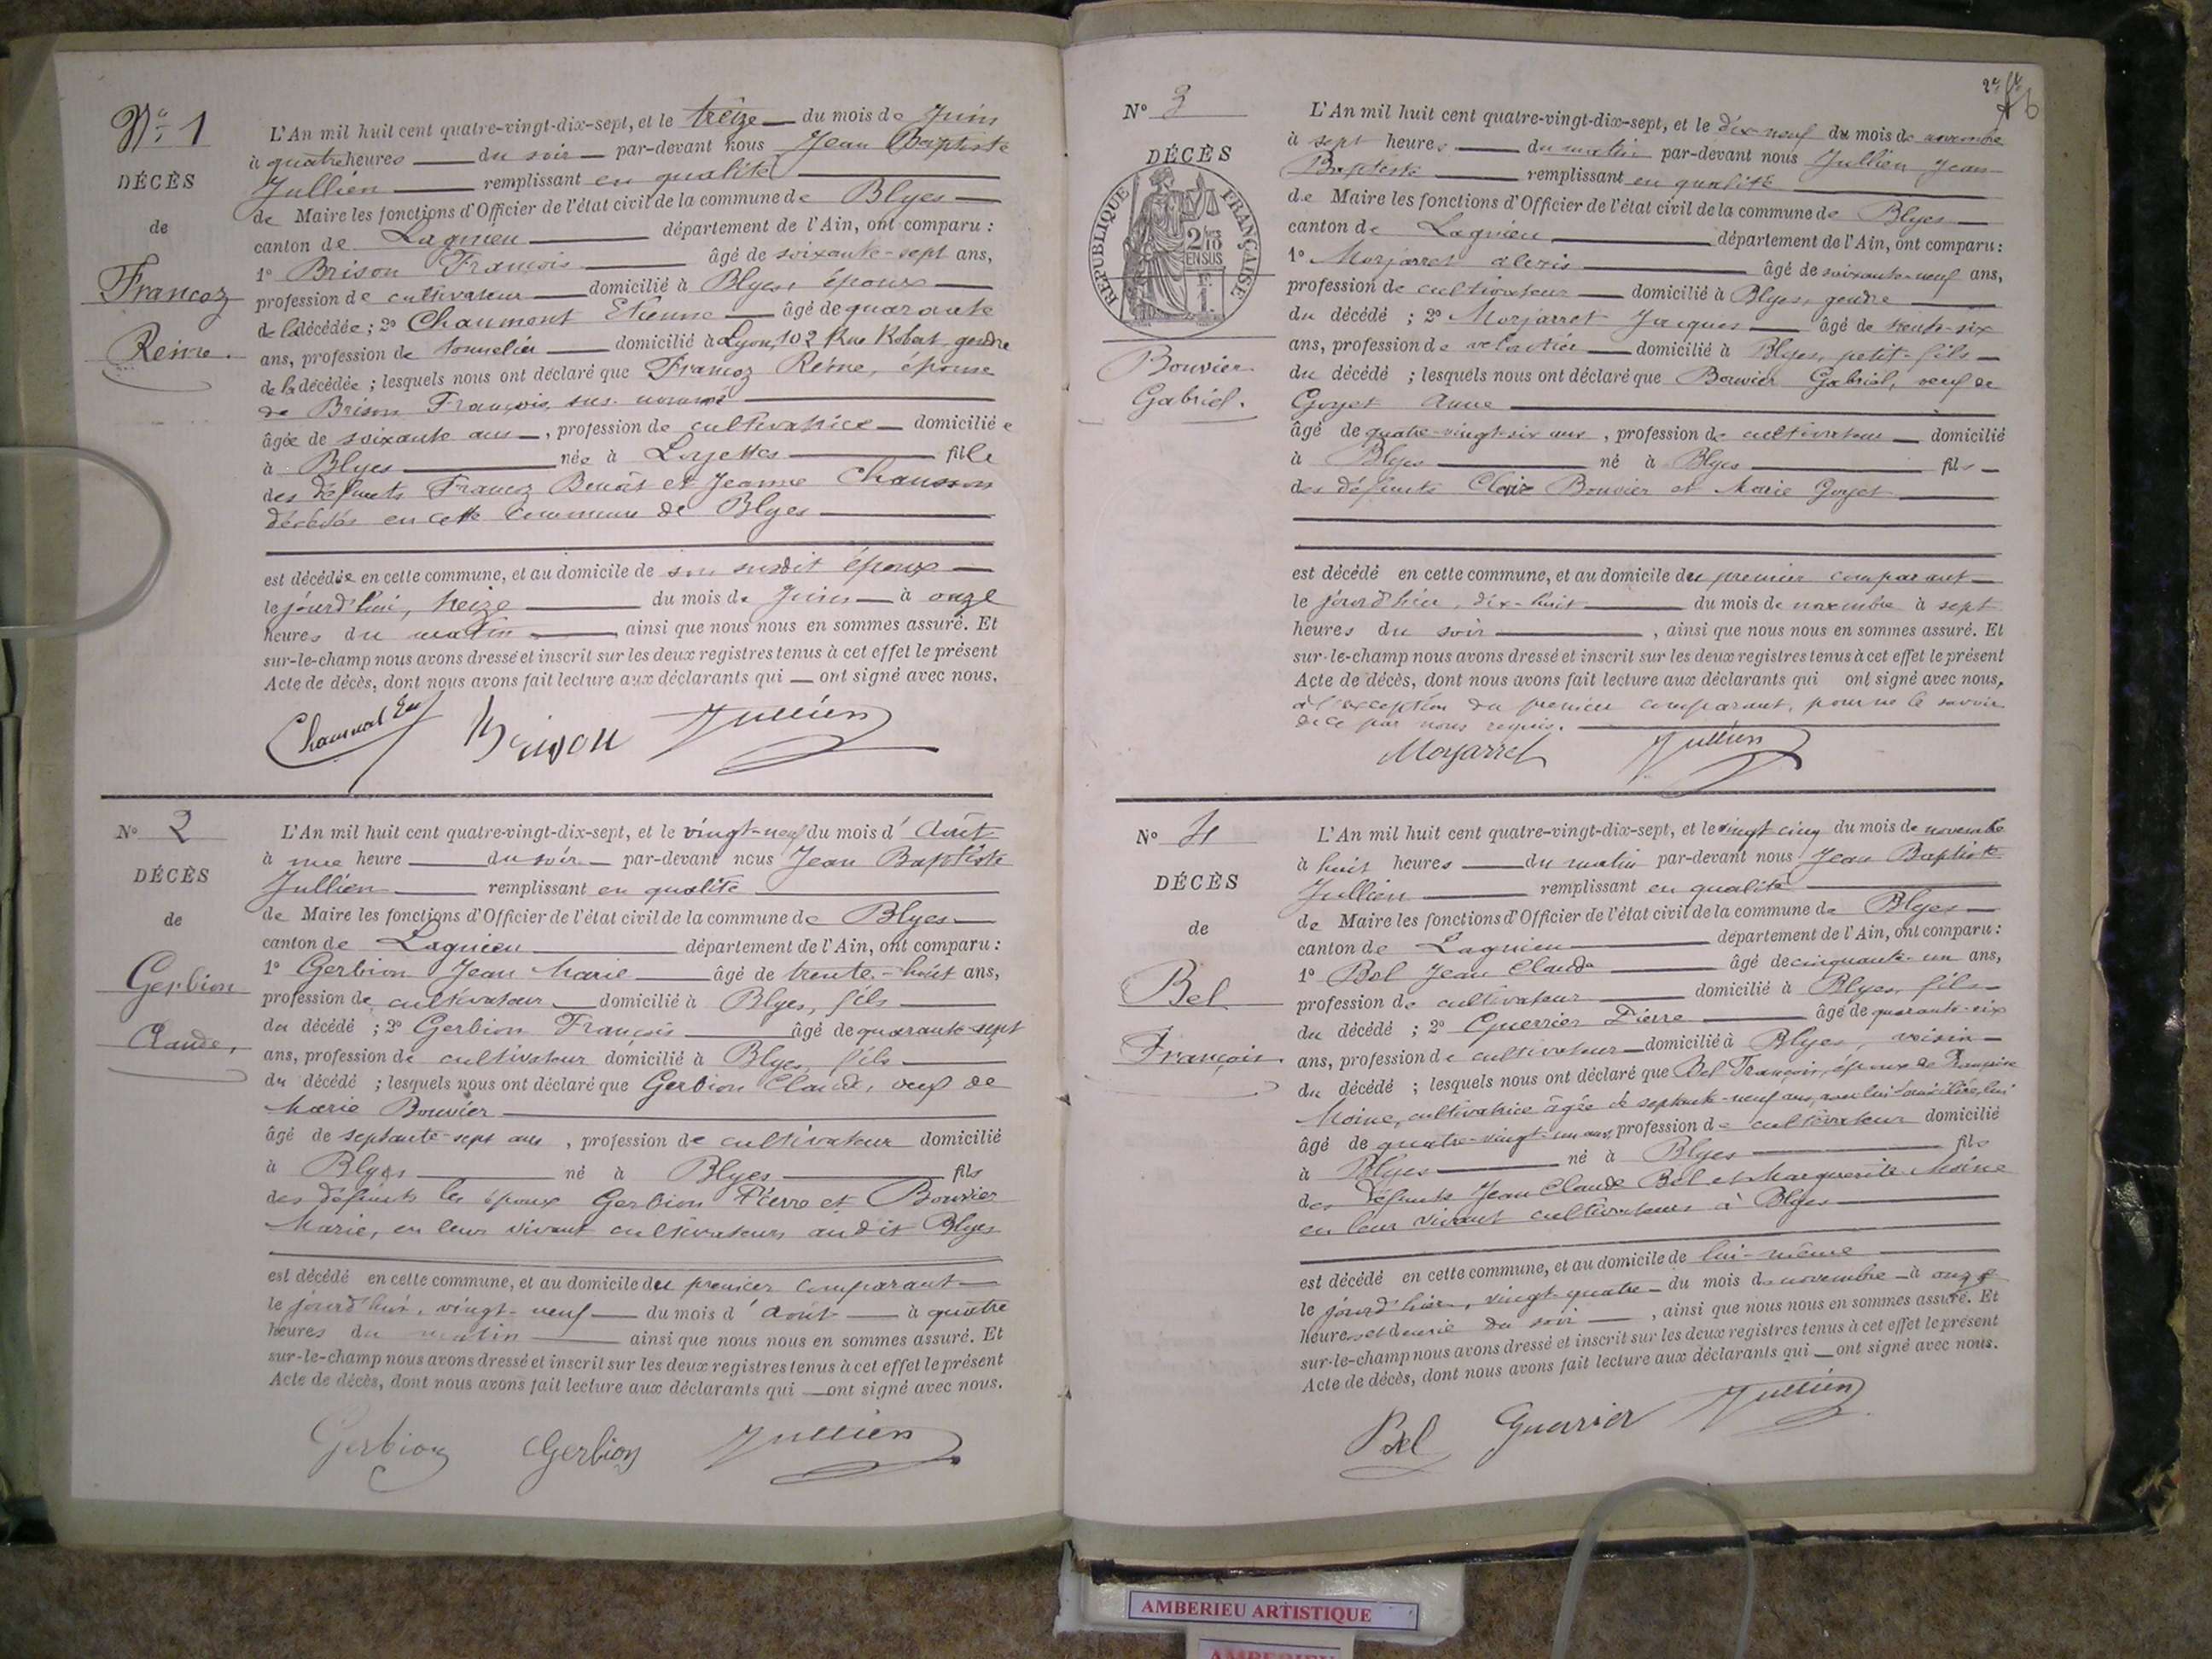 N° 1
DÉCÈS
de
Francoz
Reine.
L'An mil huit cent quatre-vingt-dix-sept, et le treize du mois de Juin
à quatre heures du soir par-devant nous Jean Baptiste
Jullien remplissant en qualité
de Maire les fonctions d'Officier de l'état civil de la commune de Blyes
canton de Lagnieu département de l'Ain, ont comparu :
1° Brison François âgé de soixante-sept ans,
profession de cultivateur domicilié à Blyes, époux
de la décédée ; 2° Chaumont Etienne âgé de quarante
ans, profession de tonnelier domicilié à Lyon, 102 Rue Robert, gendre
de la décédée ; lesquels nous ont déclaré que Francoz Reine, épouse
de Brison François, sus-nommé
âgée de soixante ans, profession de cultivatrice domiciliée
à Blyes née à Loyettes fille
des défunts Francoz Benoît et Jeanne Chausson
décédés en cette commune de Blyes
est décédée en cette commune, et au domicile de son susdit époux
le jourd'hui, treize du mois de Juin à onze
heures du matin ainsi que nous nous en sommes assuré. Et
sur-le-champ nous avons dressé et inscrit sur les deux registres tenus à cet effet le présent
Acte de décès, dont nous avons fait lecture aux déclarants qui ont signé avec nous.
Brison Jullien
N° 2
DÉCÈS
de
Gerbion
Claude,
L'An mil huit cent quatre-vingt-dix-sept, et le vingt-neuf du mois d'Août
à une heure du soir par-devant nous Jean Baptiste
Jullien remplissant en qualité
de Maire les fonctions d'Officier de l'état civil de la commune de Blyes
canton de Lagnieu département de l'Ain, ont comparu :
1° Gerbion Jean Marie âgé de trente-huit ans,
profession de cultivateur domicilié à Blyes, fils
du décédé ; 2° Gerbion François âgé de quarante-sept
ans, profession de cultivateur domicilié à Blyes, fils
du décédé ; lesquels nous ont déclaré que Gerbion Claude, veuf de
Marie Bouvier
âgé de septante-sept ans, profession de cultivateur domicilié
à Blyes né à Blyes fils
des défunts les époux Gerbion Pierre et Bouvier
Marie, en leur vivant cultivateurs audit Blyes
est décédé en cette commune, et au domicile du premier comparant
le jourd'hui, vingt-neuf du mois d'août à quatre
heures du matin ainsi que nous nous en sommes assuré. Et
sur-le-champ nous avons dressé et inscrit sur les deux registres tenus à cet effet le présent
Acte de décès, dont nous avons fait lecture aux déclarants qui ont signé avec nous.
Gerbion Gerbion Jullien
N° 3
DÉCÈS
RÉPUBLIQUE FRANÇAISE
2/10 EN SUS
Bouvier
Gabriel.
L'An mil huit cent quatre-vingt-dix-sept, et le dix-neuf du mois de novembre
à sept heures du matin par-devant nous Jullien Jean
Baptiste remplissant en qualité
de Maire les fonctions d'Officier de l'état civil de la commune de Blyes
canton de Lagnieu département de l'Ain, ont comparu :
1° Morjarret Alexis âgé de soixante-neuf ans,
profession de cultivateur domicilié à Blyes, gendre
du décédé ; 2° Morjarret Jacques âgé de trente-six
ans, profession de domicilié à Blyes, petit-fils
du décédé ; lesquels nous ont déclaré que Bouvier Gabriel, veuf de
Goyet Anne
âgé de quatre-vingt-six ans, profession de cultivateur domicilié
à Blyes né à Blyes fils
des défunts Bouvier et Marie Goyet
est décédé en cette commune, et au domicile du premier comparant
le jourd'hier, dix-huit du mois de novembre à sept
heures du soir, ainsi que nous nous en sommes assuré. Et
sur-le-champ nous avons dressé et inscrit sur les deux registres tenus à cet effet le présent
Acte de décès, dont nous avons fait lecture aux déclarants qui ont signé avec nous,
à l'exception du premier comparant, pour ne le savoir
de ce par nous requis.
Morjarret Jullien
N° 4
DÉCÈS
de
Bel
François
L'An mil huit cent quatre-vingt-dix-sept, et le vingt cinq du mois de novembre
à huit heures du matin par-devant nous Jean Baptiste
Jullien remplissant en qualité
de Maire les fonctions d'Officier de l'état civil de la commune de Blyes
canton de Lagnieu département de l'Ain, ont comparu :
1° Bel Jean Claude âgé de cinquante-un ans,
profession de cultivateur domicilié à Blyes, fils
du décédé ; 2° Guerrier Pierre âgé de quarante-six
ans, profession de cultivateur domicilié à Blyes, voisin
du décédé ; lesquels nous ont déclaré que Bel François, époux de
Moine, cultivatrice âgée de septante-neuf ans, avec lui domiciliée, lui
âgé de quatre-vingt-un ans, profession de cultivateur domicilié
à Blyes né à Blyes fils
des défunts Jean Claude Bel et Marguerite Moine
en leur vivant cultivateurs à Blyes
est décédé en cette commune, et au domicile de lui-même
le jourd'hier, vingt-quatre du mois de novembre à onze
heures et demie du soir, ainsi que nous nous en sommes assuré. Et
sur-le-champ nous avons dressé et inscrit sur les deux registres tenus à cet effet le présent
Acte de décès, dont nous avons fait lecture aux déclarants qui ont signé avec nous.
Bel Guerrier Jullien
AMBERIEU ARTISTIQUE
AMBERIEU